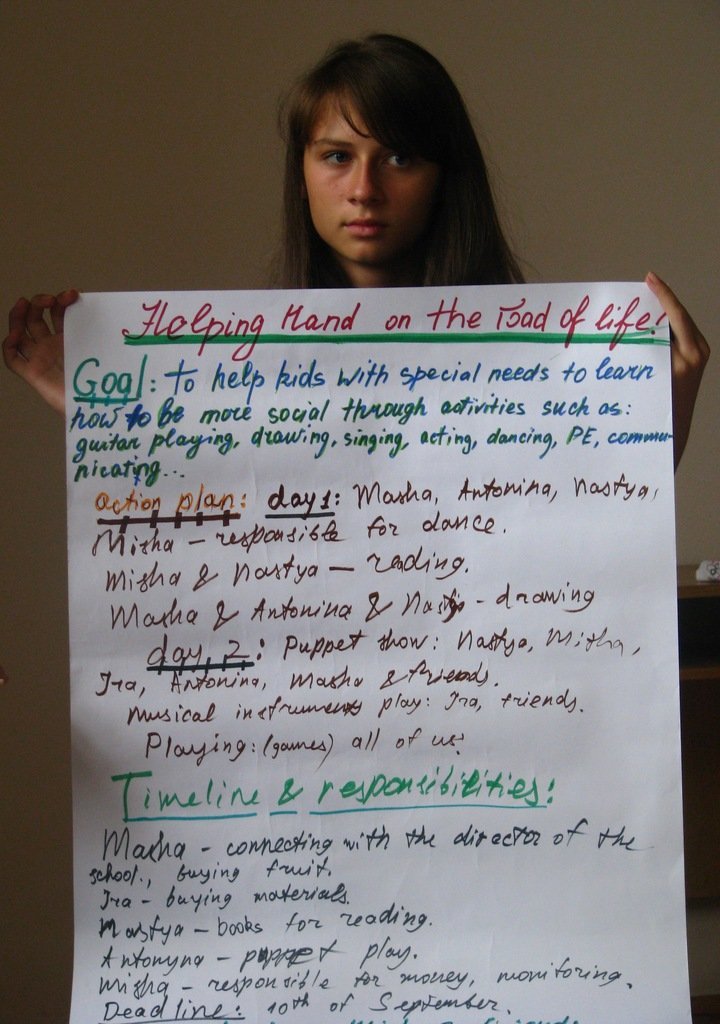 Helping Hand on the road of life!
Goal: to help kids with special needs to learn
how to be more social through activities such as:
guitar playing, drawing, singing, acting, dancing, PE, commu-
nicating...
action plan: day 1: Masha, Antonina, Nastya,
Misha – responsible for dance.
Misha & Nastya – reading.
Masha & Antonina & Nastya - drawing
day 2: Puppet show: Nastya, Misha,
Ira, Antonina, Masha & friends.
Musical instruments play: Ira, friends.
Playing: (games) all of us!
Timeline & responsibilities:
Masha - connecting with the director of the
school, buying fruit.
Ira - buying materials.
Nastya – books for reading.
Antonyna – puppet play.
Misha - responsible for money, monitoring.
Deadline: 10th of September.